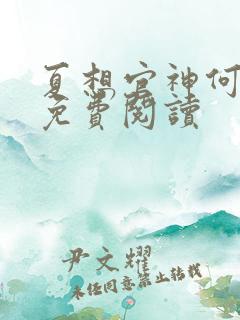 夏想官神何
免費閱讀
尹文耀
未任同意禁止轉載